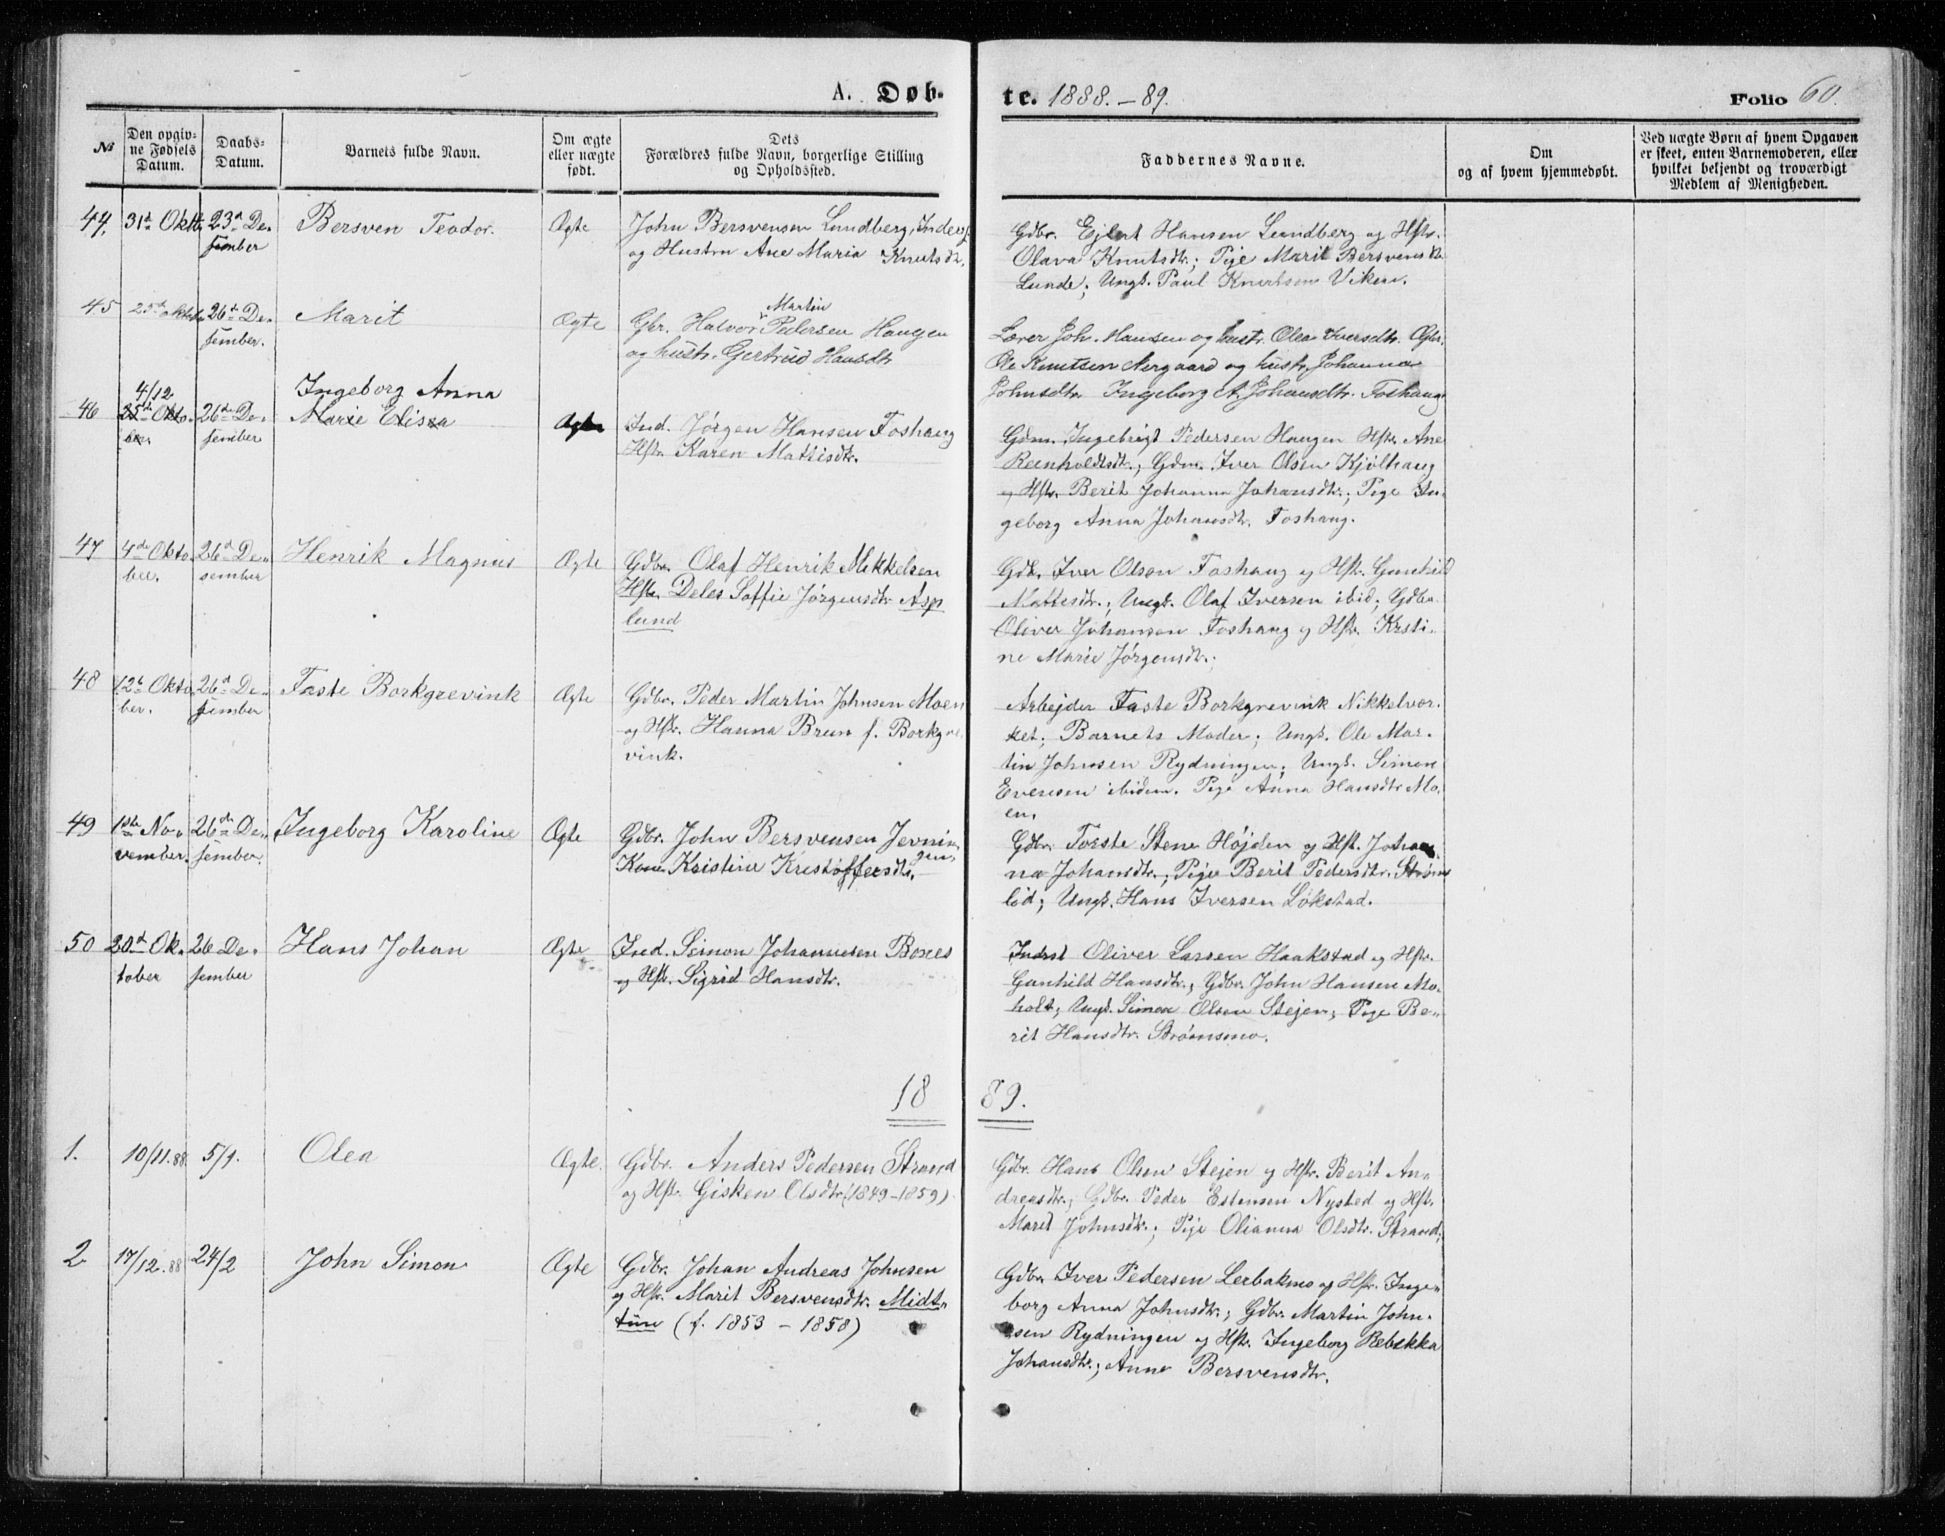 A. Døb-
te. 1888.-89.
Folio 60.
No
Den opgiv-
ne Fødsels
Datum.
Daabs-
Datum.
Barnets fulde Navn.
Om ægte
eller uægte
født.
Dets
Forældres fulde Navn, borgerlige Stilling
og Opholdssted.
Faddernes Navne.
Om
og af hvem hjemmedøbt.
Ved uægte Børn af hvem Opgaven
er skeet, enten Barnemoderen, eller
hvilket bekjendt og troværdigt
Medlem af Menigheden.
44. 31te Oktb. 23d De-
sember
Bersven Teodor.
Ægte
John Bersvensen Lundberg, Inders.
og Hustru Ane Maria Knutsdtr.
Gdbr. Ejlert Hansen Lundberg og Hstr.
Olava Knutsdtr; Pige Marit Bersvensdtr
Lunde; Ungk. Paul Knutsen Viken.
45 25de Oktob. 26de De-
sember.
Marit
Ægte
Martin
Gbr. Halvor Pedersen Haugen
og hustr. Gertrud Hansdtr
Lærer Joh. Hansen og hustr. Olea Iversdtr. Gbr.
Ole Knutsen Nergaard og hustr. Johanna
Johnsdtr Ingeborg A. Johansdtr. Foshaug
46
4/12
25de Okto-
ber.
26de De-
sember
Ingeborg Anna
Marie Elisa
Ægte
Ind. Jørgen Hansen Foshaug
Hstr. Karen Mattisdtr.
Gdm. Ingebrigt Pedersen Haugen Hstr. Ane
Reenholdtsdtr.; Gdm. Iver Olsen Kjølhaug
og Hstr. Berit Johanna Johansdtr.; Pige In-
geborg Anna Johansdtr. Foshaug.
47 4de Okto-
ber.
26d De-
sember
Henrik Magnus
Ægte
Gdbr. Olaf Henrik Mikkelsen
Hstr. Deles Soffie Jørgensdtr Asp
lund
Gdb. Iver Olsen Foshaug og Hstr. Gunhild
Mattesdtr.; Ungk. Olaf Iversen ibid; Gdbr.
Oliver Johansen Foshaug og Hstr. Kristi-
ne Marie Jørgensdtr.
48 12te Okto-
ber.
26d De-
sember
Faste Borkgrevink
Ægte
Gdbr. Peder Martin Johnsen Moen
og Hstr. Hanna Brun f. Borkgre
vink.
Arbejder Faste Borkgrevink Nikkelvær-
ket; Barnets Moder; Ungk. Ole Mar-
tin Johnsen Rydningen; Ungk. Simon
Evensen ibidem. Pige Anna Hansdtr Mo-
en.
49 1ste No-
vember.
26de De-
sember.
Ingeborg Karoline
Ægte
Gdbr. John Bersvensen Jevnin-
gen,
Kone Kristine Kristoffersdtr.
Gdbr. Torste Stene Højden og Hst. Johan-
na Johansdtr.; Pige Berit Pedersdtr. Strøms
lid; Ungk. Hans Iversen Løkstad.
50 20d Ok-
tober
26 De-
sember
Hans Johan
Ægte
Ind. Simon Johannesen Bones
og Hstr. Sigrid Hansdtr.
Inderst Oliver Larsen Haakstad og Hstr.
Gunhild Hansdtr.; Gdbr. John Hansen Mo-
holt; Ungk. Simon Olsen Stejen; Pige Be-
rit Hansdtr. Strømsmo.
18 89.
1. 10/11.88. 5/1.
Olea
Ægte.
Gdbr. Anders Pedersen Strand
og Hstr. Gisken Olsdtr. (1849-1859).
Gdbr. Hans Olsen Stejen og Hstr. Berit An-
dreasdtr.; Gdbr. Peder Estensen Nysted og Hstr.
Marit Johnsdtr.; Pige Olianna Olsdtr. Strand;
2 17/12.88 24/2
John Simon
Ægte
Gdbr. Johan Andreas Johnsen
og Hstr. Marit Bersvensdtr. Midt-
tun (f. 1853 - 1858)
Gdbr. Iver Pedersen Lerbakmo og Hstr. Inge-
borg Anna Johnsdtr.; Gdbr. Martin John-
sen Rydningen og Hstr. Ingeborg Rebekka
Johansdtr.; Anne Bersvensdtr.